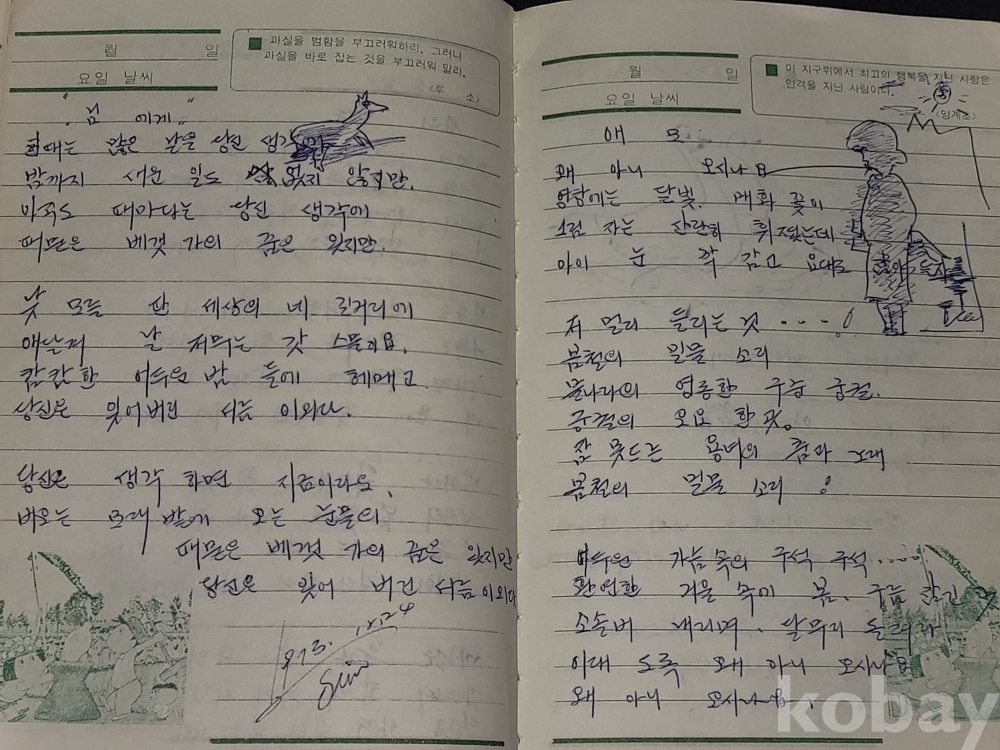 월 일
요일 날씨
과실을 범함을 부끄러워하라. 그러나
과실을 바로 잡는 것을 부끄러워 말라.
<루 소>
"님 에게"
한때는 많은 날을 당신 생각
밤까지 새운 일도 없지 않지만.
아직도 때마다는 당신 생각에
때묻은 베갯 가의 꿈은 있지만.
낯 모를 딴 세상의 네 길거리에
애달피 날 저무는 갓 스물이요.
캄캄한 어두운 밤 들에 헤메고
당신은 잊어버린 서름 이외다.
당신은 생각 하면 지금이라도.
비오는 모래 밭에 오는 눈물의
때묻은 베갯 가의 꿈은 있지만
당신은 잊어 버린 서름이외다
월 일
요일 날씨
이 지구위에서 최고의 행복을 지닌 사람은
인격을 지닌 사람이다.
애 모
왜 아니 오시나요
영창에는 달빛. 매화 꽃이
그림 자는 산란히 휘젓는데
아이 눈 꽉 감고 요대로
저 멀리 들리는 것 ....!
봄철의 밀물 소리
물나라의 영롱한 구중 궁궐.
궁궐의 오요 한 곳.
잠 못드는 용녀의 춤과 노래
봄철의 밀물 소리 !
어두운 가슴속의 구석 구석.....
환연한 거울 속에 봄. 구름 잠긴
소솔비 내리며. 달무리 둘려라
이대 도록 왜 아니 오시나요
왜 아니 오시나요
kobay